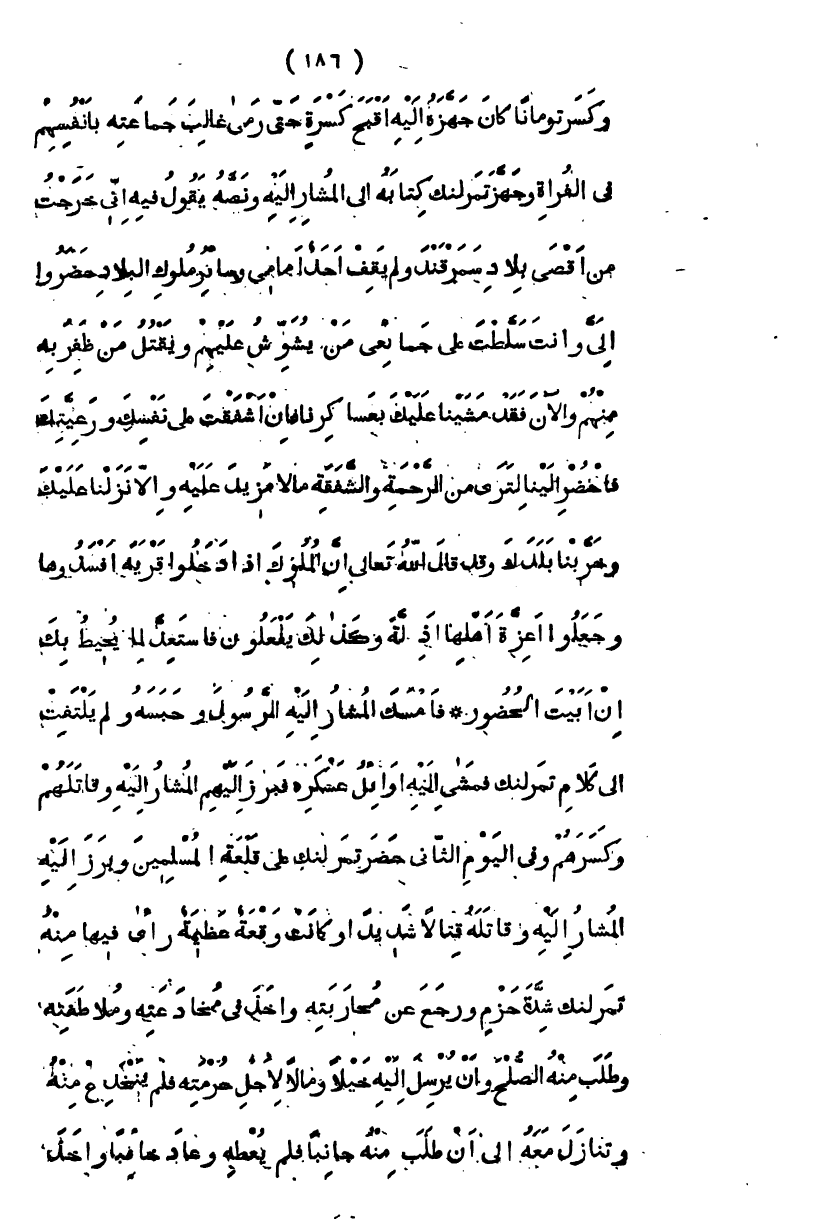 ( ١٨٦ )
وَكَسَرَ تومانًا كانَ جَهَّزَهُ اِلَيْهِ اَقْبَحَ كَسْرَةٍ حَتّٰى رَمىٰ غالِبُ جَماعَتِه بِاَنْفُسِهِمْ
فى الفُراةِ وجَهَّزَ تمرلنك كِتابَهُ الى المُشارِ اِلَيْهِ ونَصُّهُ يَقُولُ فيهِ اِنّى خَرَجْتُ
مِن اَقْصَى بِلادِ سَمَرقَنْدَ ولم يَقِفْ اَحَدٌ اَمامى وسائِرُ ملوكِ البِلادِ حَضَرُوا
اِلَىَّ وانتَ سَلَّطْتَ على جَماعَتى مَنْ يُشَوِّشُ عَلَيْهِمْ ويَقْتُلُ مَنْ ظَفِرَ بِه
مِنْهُمْ والآنَ فَقَدْ مَشَيْنا عَلَيْكَ بعَساكِرِنا فاِنْ اَشْفَقْتَ على نَفْسِكَ ورَعِيَّتِكَ
فاحْضُرْ اِلَيْنا لِتَرَى من الرَّحْمَةِ والشَّفَقَةِ مالا مَزيدَ عَلَيْهِ واِلّا نَزَلْنا عَلَيْكَ
وخَرَّبْنا بَلَدَكَ وقد قالَ اللّٰهُ تَعالى اِنَّ المُلُوكَ اذا دَخَلُوا قَرْيَةً اَفْسَدُوها
وجَعَلُوا اَعِزَّةَ اَهْلِها اَذِلَّةً وكَذٰلِكَ يَفْعَلُونَ فاستَعِدَّ لِما يُحيطُ بِكَ
اِنْ اَبَيْتَ الحُضُورَ * فاَمْسَكَ المُشارُ اِلَيْهِ الرَّسُولَ وحَبَسَهُ ولم يَلْتَفِتْ
الى كَلامِ تمرلنك فمَشٰى اِلَيْهِ اوَائِلُ عَسْكَرِه فبَرَزَ اِلَيْهِم المُشارُ اِلَيْهِ وقاتَلَهُمْ
وكَسَرَهُمْ وفى اليَوْمِ الثّانى حَضَرَ تمرلنك على قَلْعَةِ المُسْلِمينَ وبَرَزَ اِلَيْهِ
المُشارُ اِلَيْهِ وقاتَلَهُ قِتالًا شَديدًا وكانَتْ وَقْعَةً عَظيمَةً رأىٰ فيها مِنْهُ
تمرلنك شِدَّةَ حَزْمٍ ورجَعَ عن مُحارَبَتِه واخَذَ فى مُخادَعَتِه ومُلاطَفَتِه
وطَلَبَ مِنْهُ الصُّلْحَ وأنْ يُرْسِلَ اِلَيْهِ خَيْلًا ومالًا لِاَجْلِ حُرْمَتِه فلم يَنْخَدِعْ مِنْهُ
وتنازَلَ مَعَهُ الى اَنْ طَلَبَ مِنْهُ جانِبًا فلم يُعْطِهِ وعادَ خائِبًا واخَذَ